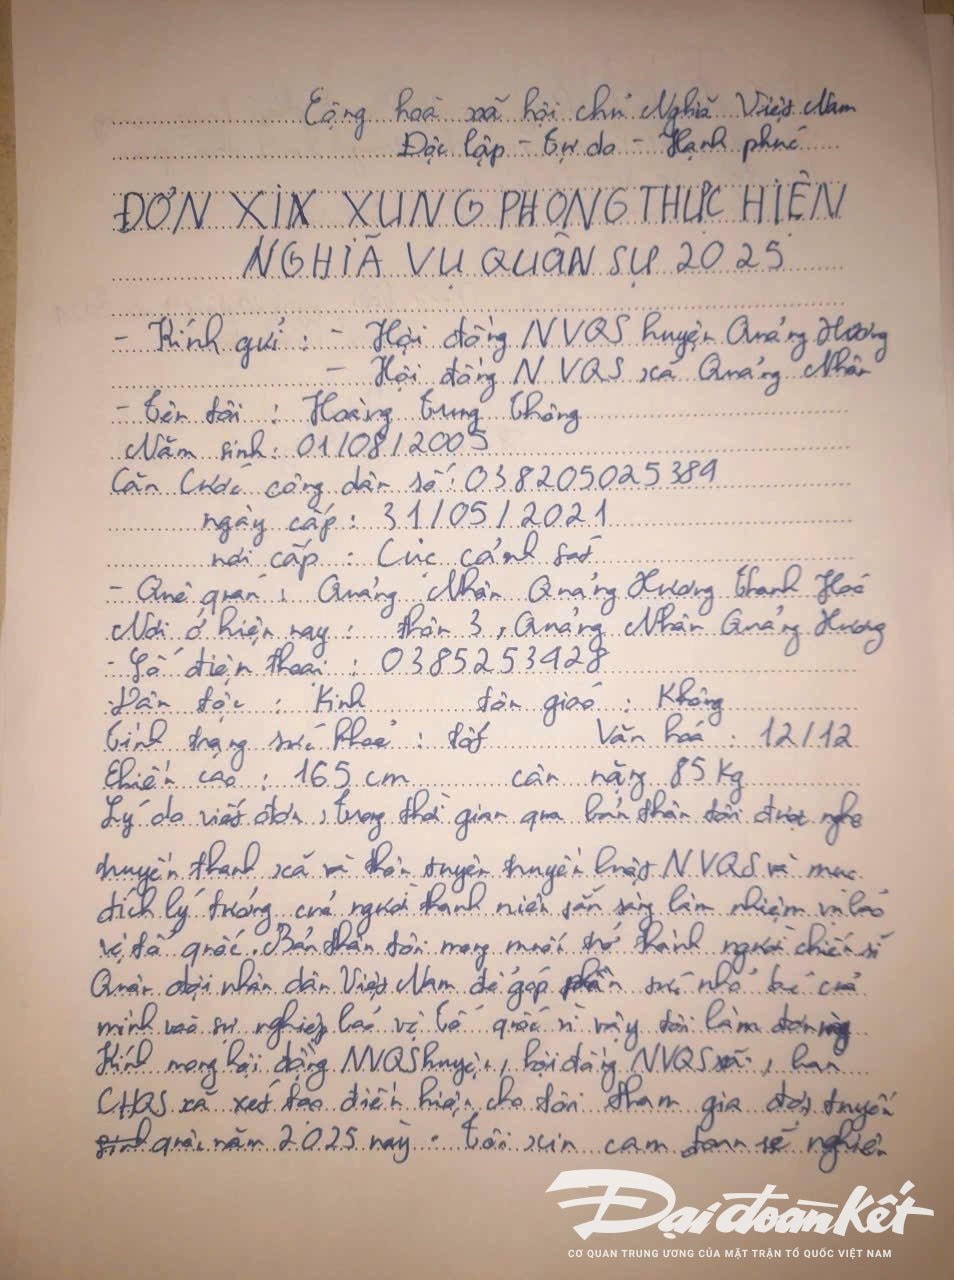 Cộng hoà xã hội chủ Nghĩa Việt Nam
Độc lập - Tự do - Hạnh phúc
ĐƠN XIN XUNG PHONG THỰC HIỆN
NGHĨA VỤ QUÂN SỰ 2025
- Kính gửi : - Hội đồng NVQS huyện Quảng Xương
- Hội đồng NVQS xã Quảng Nhân
- Tên tôi : Hoàng Trung Thông
Năm sinh : 01/08/2005
Căn Cước công dân số : 038205025384
ngày cấp : 31/05/2021
nơi cấp : Cục cảnh sát
- Quê quán : Quảng Nhân Quảng Xương Thanh Hoá
Nơi ở hiện nay : thôn 3, Quảng Nhân Quảng Xương
- Số điện thoại : 0385253428
Dân tộc : Kinh tôn giáo : Không
Tình trạng sức khoẻ : tốt Văn hoá : 12/12
Chiều cao : 165 cm cân nặng 85 Kg
Lý do viết đơn, trong thời gian qua bản thân tôi được nghe
truyền thanh xã và thôn tuyên truyền luật NVQS và mục
đích lý tưởng của người thanh niên sẵn sàng làm nhiệm vụ bảo
vệ tổ quốc. Bản thân tôi mong muốn trở thành người chiến sĩ
Quân đội nhân dân Việt Nam để góp phần sức nhỏ bé của
mình vào sự nghiệp bảo vệ Tổ quốc vì vậy tôi làm đơn này
Kính mong hội đồng NVQS huyện, hội đồng NVQS xã, ban
CHQS xã xét tạo điều kiện cho tôi tham gia đợt tuyển
quân năm 2025 này. Tôi xin cam đoan sẽ nghiêm
Đại đoàn kết
CƠ QUAN TRUNG ƯƠNG CỦA MẶT TRẬN TỔ QUỐC VIỆT NAM